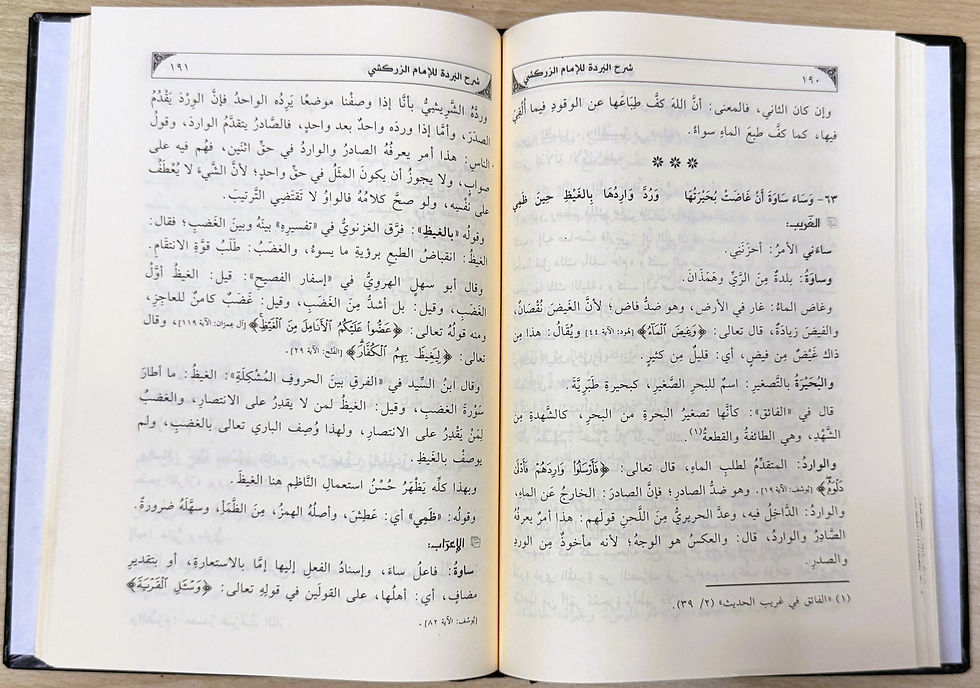 شرح البردة للإمام الزركشي
١٩٠
وإن كان الثاني، فالمعنى: أنَّ اللهَ كفَّ طِبَاعَها عن الوقودِ فيما أُلْقِيَ
فيها، كما كفَّ طبعَ الماءِ سواءً.
٦٣- وَسَاءَ سَاوَةَ أَنْ غَاضَتْ بُحَيْرَتُهَا وَرُدَّ وَارِدُهَا بِالغَيْظِ حِينَ ظَمِي
الغَرِيب:
ساءَني الأمرُ: أحزَنَني.
وساوَةُ: بلدةٌ مِنَ الرَّيِّ وهَمَذَانَ.
وغاضَ الماءُ: غار في الأرض، وهو ضدُّ فاضَ؛ لأنَّ الغَيضَ نُقْصَانٌ،
والفيضَ زيادةٌ، قال تعالى: ﴿وَغِيضَ ٱلْمَآءُ﴾ [هُود: الآية ٤٤] ويُقَالُ: هذا مِن
ذاك غَيْضٌ مِن فيضٍ، أي: قليلٌ مِن كثيرٍ.
والبُحَيْرَةُ بالتَّصغيرِ: اسمٌ للبحرِ الصَّغيرِ، كبحيرةِ طَبَرِيَّةَ.
قال في «الفائق»: كأنَّها تصغيرُ البحرةِ من البحرِ، كالشَّهدةِ مِن
الشَّهْدِ، وهي الطائفةُ والقطعةُ(١)
والواردُ: المتقدِّمُ لطلبِ الماءِ، قال تعالى: ﴿فَأَرْسَلُوا۟ وَارِدَهُمْ فَأَدْلَىٰ
دَلْوَهُۥ﴾ [يُوسُف: الآية ١٩]. وهو ضدُّ الصادرِ؛ فإنَّ الصادرَ: الخارجُ عَن الماءِ،
والواردُ: الدَّاخِلُ فيه، وعدَّ الحريريُّ مِنَ اللَّحنِ قولَهم: هذا أمرٌ يعرفُهُ
الصَّادِرُ والواردُ، قال: والعكسُ هو الوجهُ؛ لأنه مأخوذٌ مِن الوِردِ
والصدرِ.
(١) «الفائق في غريب الحديث» (٢/ ٣٩).
شرح البردة للإمام الزركشي
١٩١
وردَّهُ الشَّرِيشِيُّ بأنَّا إذا وصفْنا موضعًا يَرِدُه الواحدُ فإنَّ الوِرْدَ يَقْدُمُ
الصدَرَ، وأمَّا إذا وردَه واحدٌ بعد واحدٍ، فالصَّادرُ يتقدَّمُ الواردَ، وقولُ
الناسِ: هذا أمر يعرفُهُ الصادرُ والواردُ في حقِّ اثنَين، فهُم فيه على
صوابٍ، ولا يجوزُ أن يكونَ المثلُ في حقِّ واحدٍ؛ لأنَّ الشيءَ لا يُعْطَفُ
على نفْسِه، ولو صحَّ كلامُهُ فالواوُ لا تَقتَضِي التَّرتيبَ.
وقولُه «بالغيظِ»: فرَّق الغزنويُّ في «تفسيرِه» بينَهُ وبينَ الغضبِ؛ فقال:
الغيظُ: انقباضُ الطبعِ برؤيةِ ما يسوءُ، والغضَبُ: طلَبُ قوَّةِ الانتقامِ.
وقال أبو سهلٍ الهرويُّ في «إسفار الفصيح»: قيل: الغيظُ أوَّلُ
الغضَبِ، وقيل: بل أشدُّ مِنَ الغَضَبِ، وقيل: غَضَبٌ كامنٌ للعاجزِ،
ومنه قولُهُ تعالى: ﴿عَضُّوا۟ عَلَيْكُمُ ٱلْأَنَامِلَ مِنَ ٱلْغَيْظِ﴾ [آل عِمرَان: الآية ١١٩]، وقال
تعالى: ﴿لِيَغِيظَ بِهِمُ ٱلْكُفَّارَ﴾ [الفَتْح: الآية ٢٩].
وقال ابنُ السِّيد في «الفرقِ بينَ الحروفِ المُشْكِلَةِ»: الغيظُ: ما أطارَ
سَوْرةَ الغضَبِ، وقيل: الغيظُ لمن لا يقدِرُ على الانتصارِ، والغضَبُ
لِمَنْ يَقْدِرُ على الانتصارِ، ولهذا وُصِف الباري تعالى بالغضَبِ، ولم
يوصَفْ بالغَيظِ.
وبهذا كلِّه يَظْهَرُ حُسْنُ استعمالِ النَّاظِمِ هنا الغيظَ.
وقولُه: «ظَمِي» أي: عَطِشَ، وأصلُهُ الهمزُ، مِنَ الظَّمَأِ، وسهَّلَهُ ضرورةً.
الإِعرَاب:
ساوةُ: فاعلُ ساءَ، وإسنادُ الفعلِ إليها إمَّا بالاستعارةِ، أو بتقديرِ
مضافٍ، أي: أهلُها، على القولَين في قولِه تعالى: ﴿وَسْـَٔلِ ٱلْقَرْيَةَ﴾
[يُوسُف: الآية ٨٢].